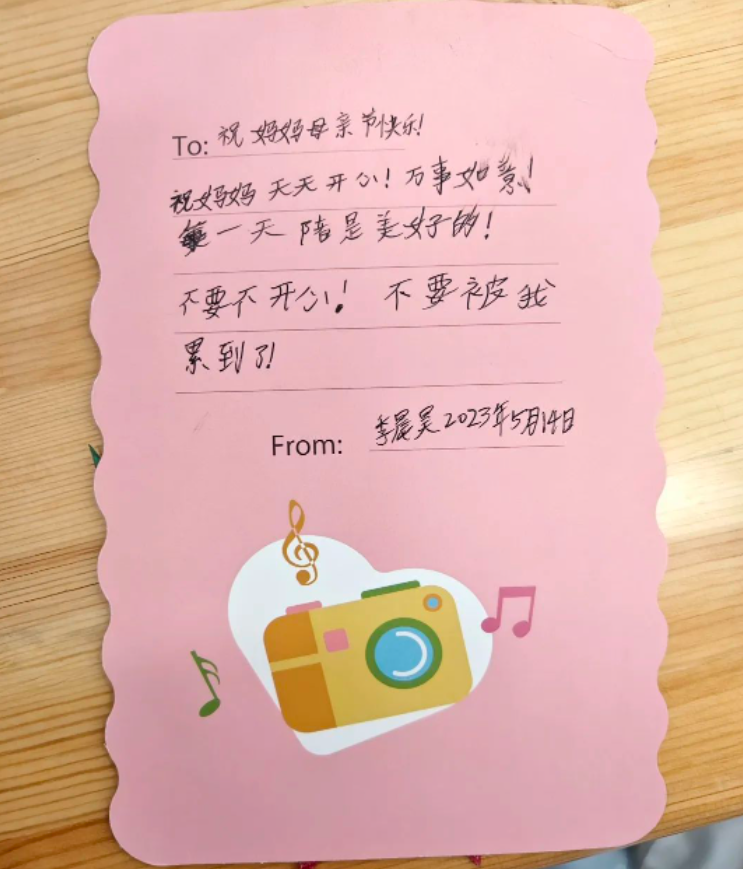 To: 祝妈妈母亲节快乐!
祝妈妈天天开心!万事如意!
每一天陪是美好的!
不要不开心! 不要被我
累到了!
From: 李晨昊2023年5月14日